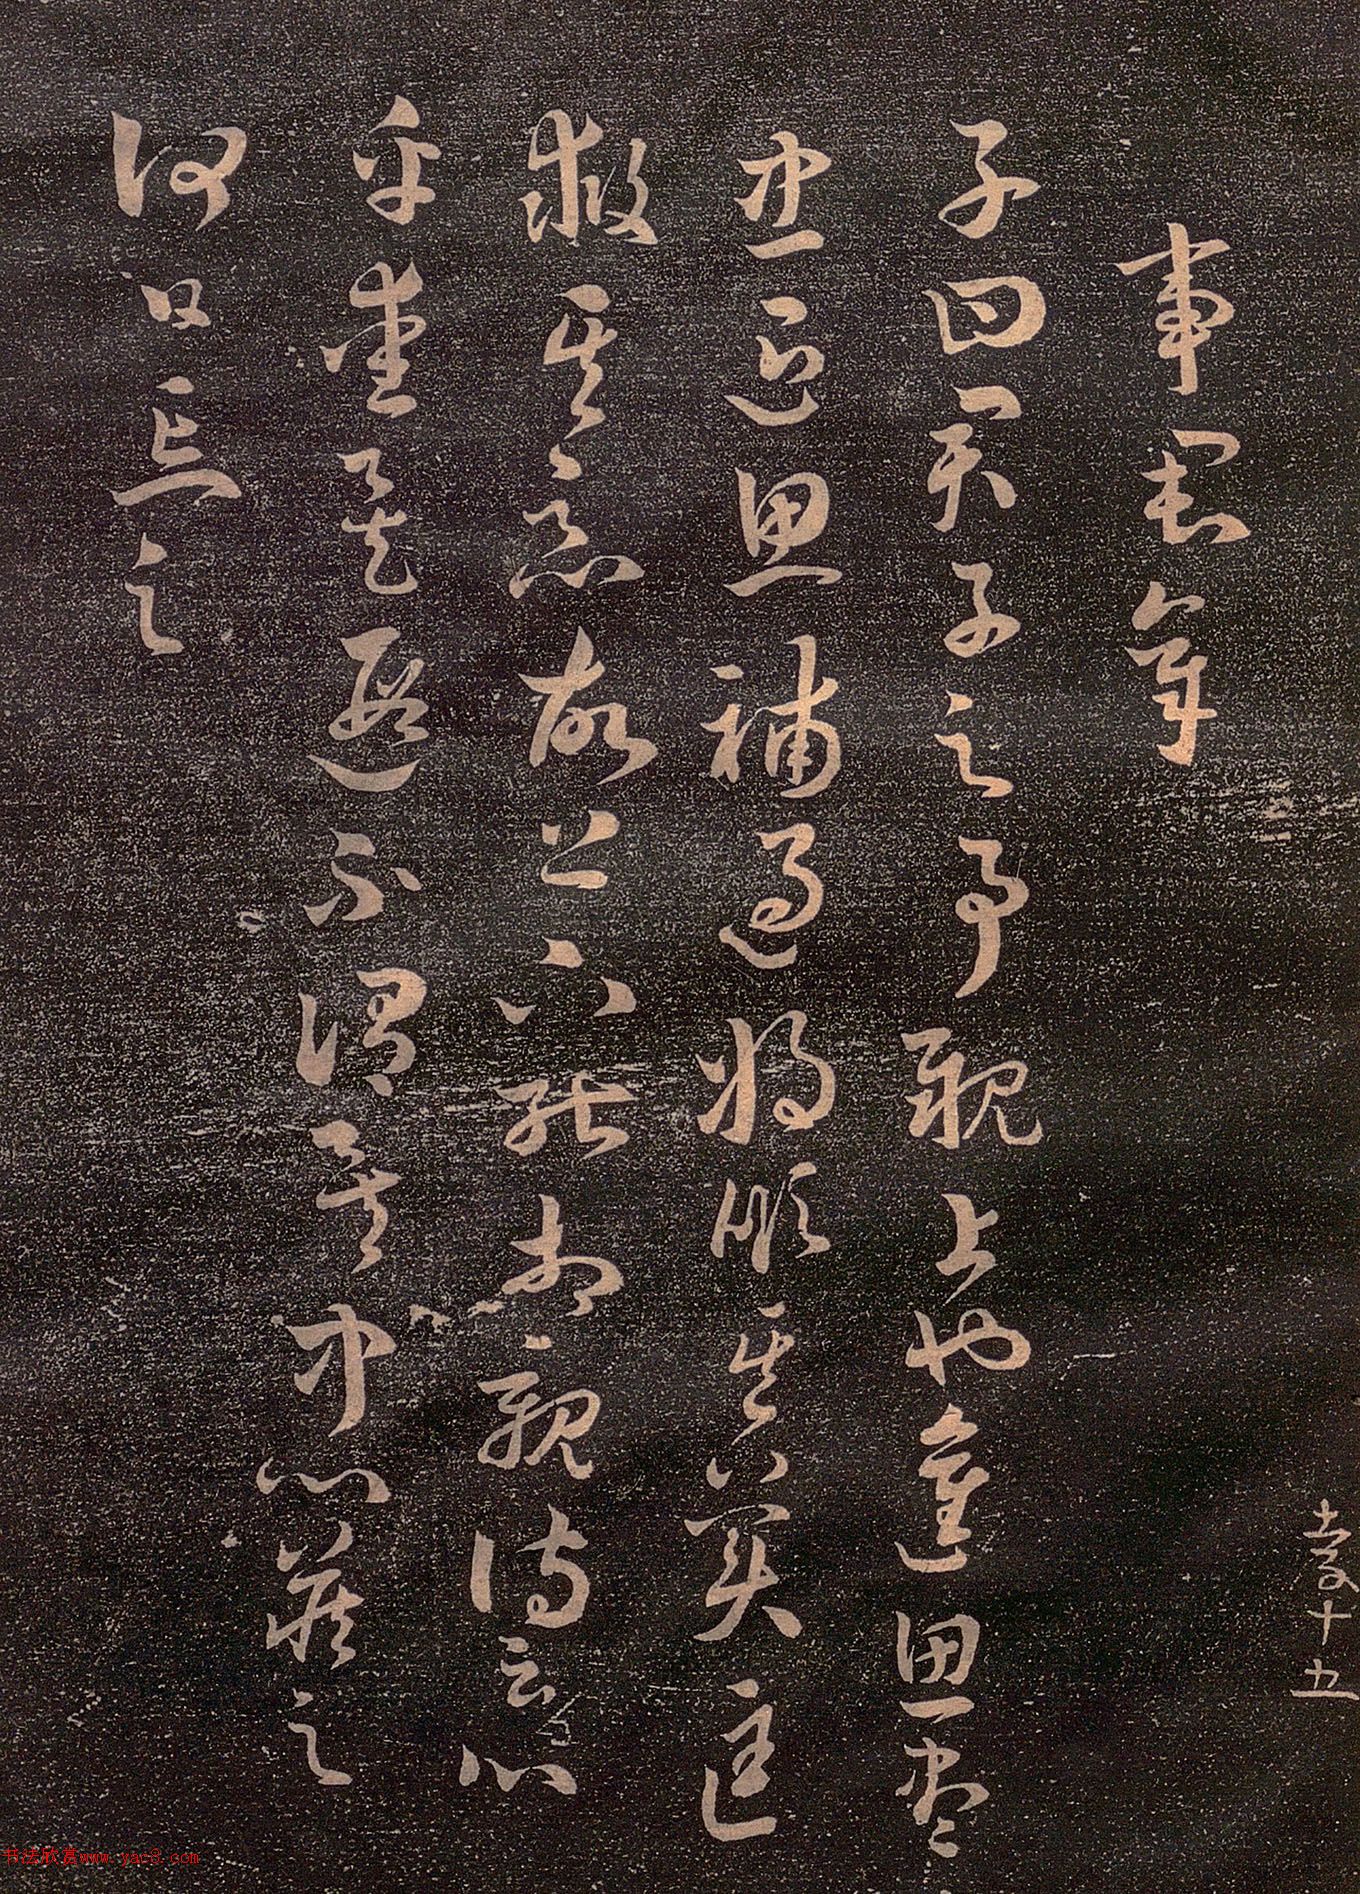 事君章
子曰君子之事親上也進思盡
忠退思補過將順其美匡
救其惡故上下能相親詩云心
乎愛矣遐不謂矣中心藏之
何日忘之
孝十五
书法欣赏www.yac8.com